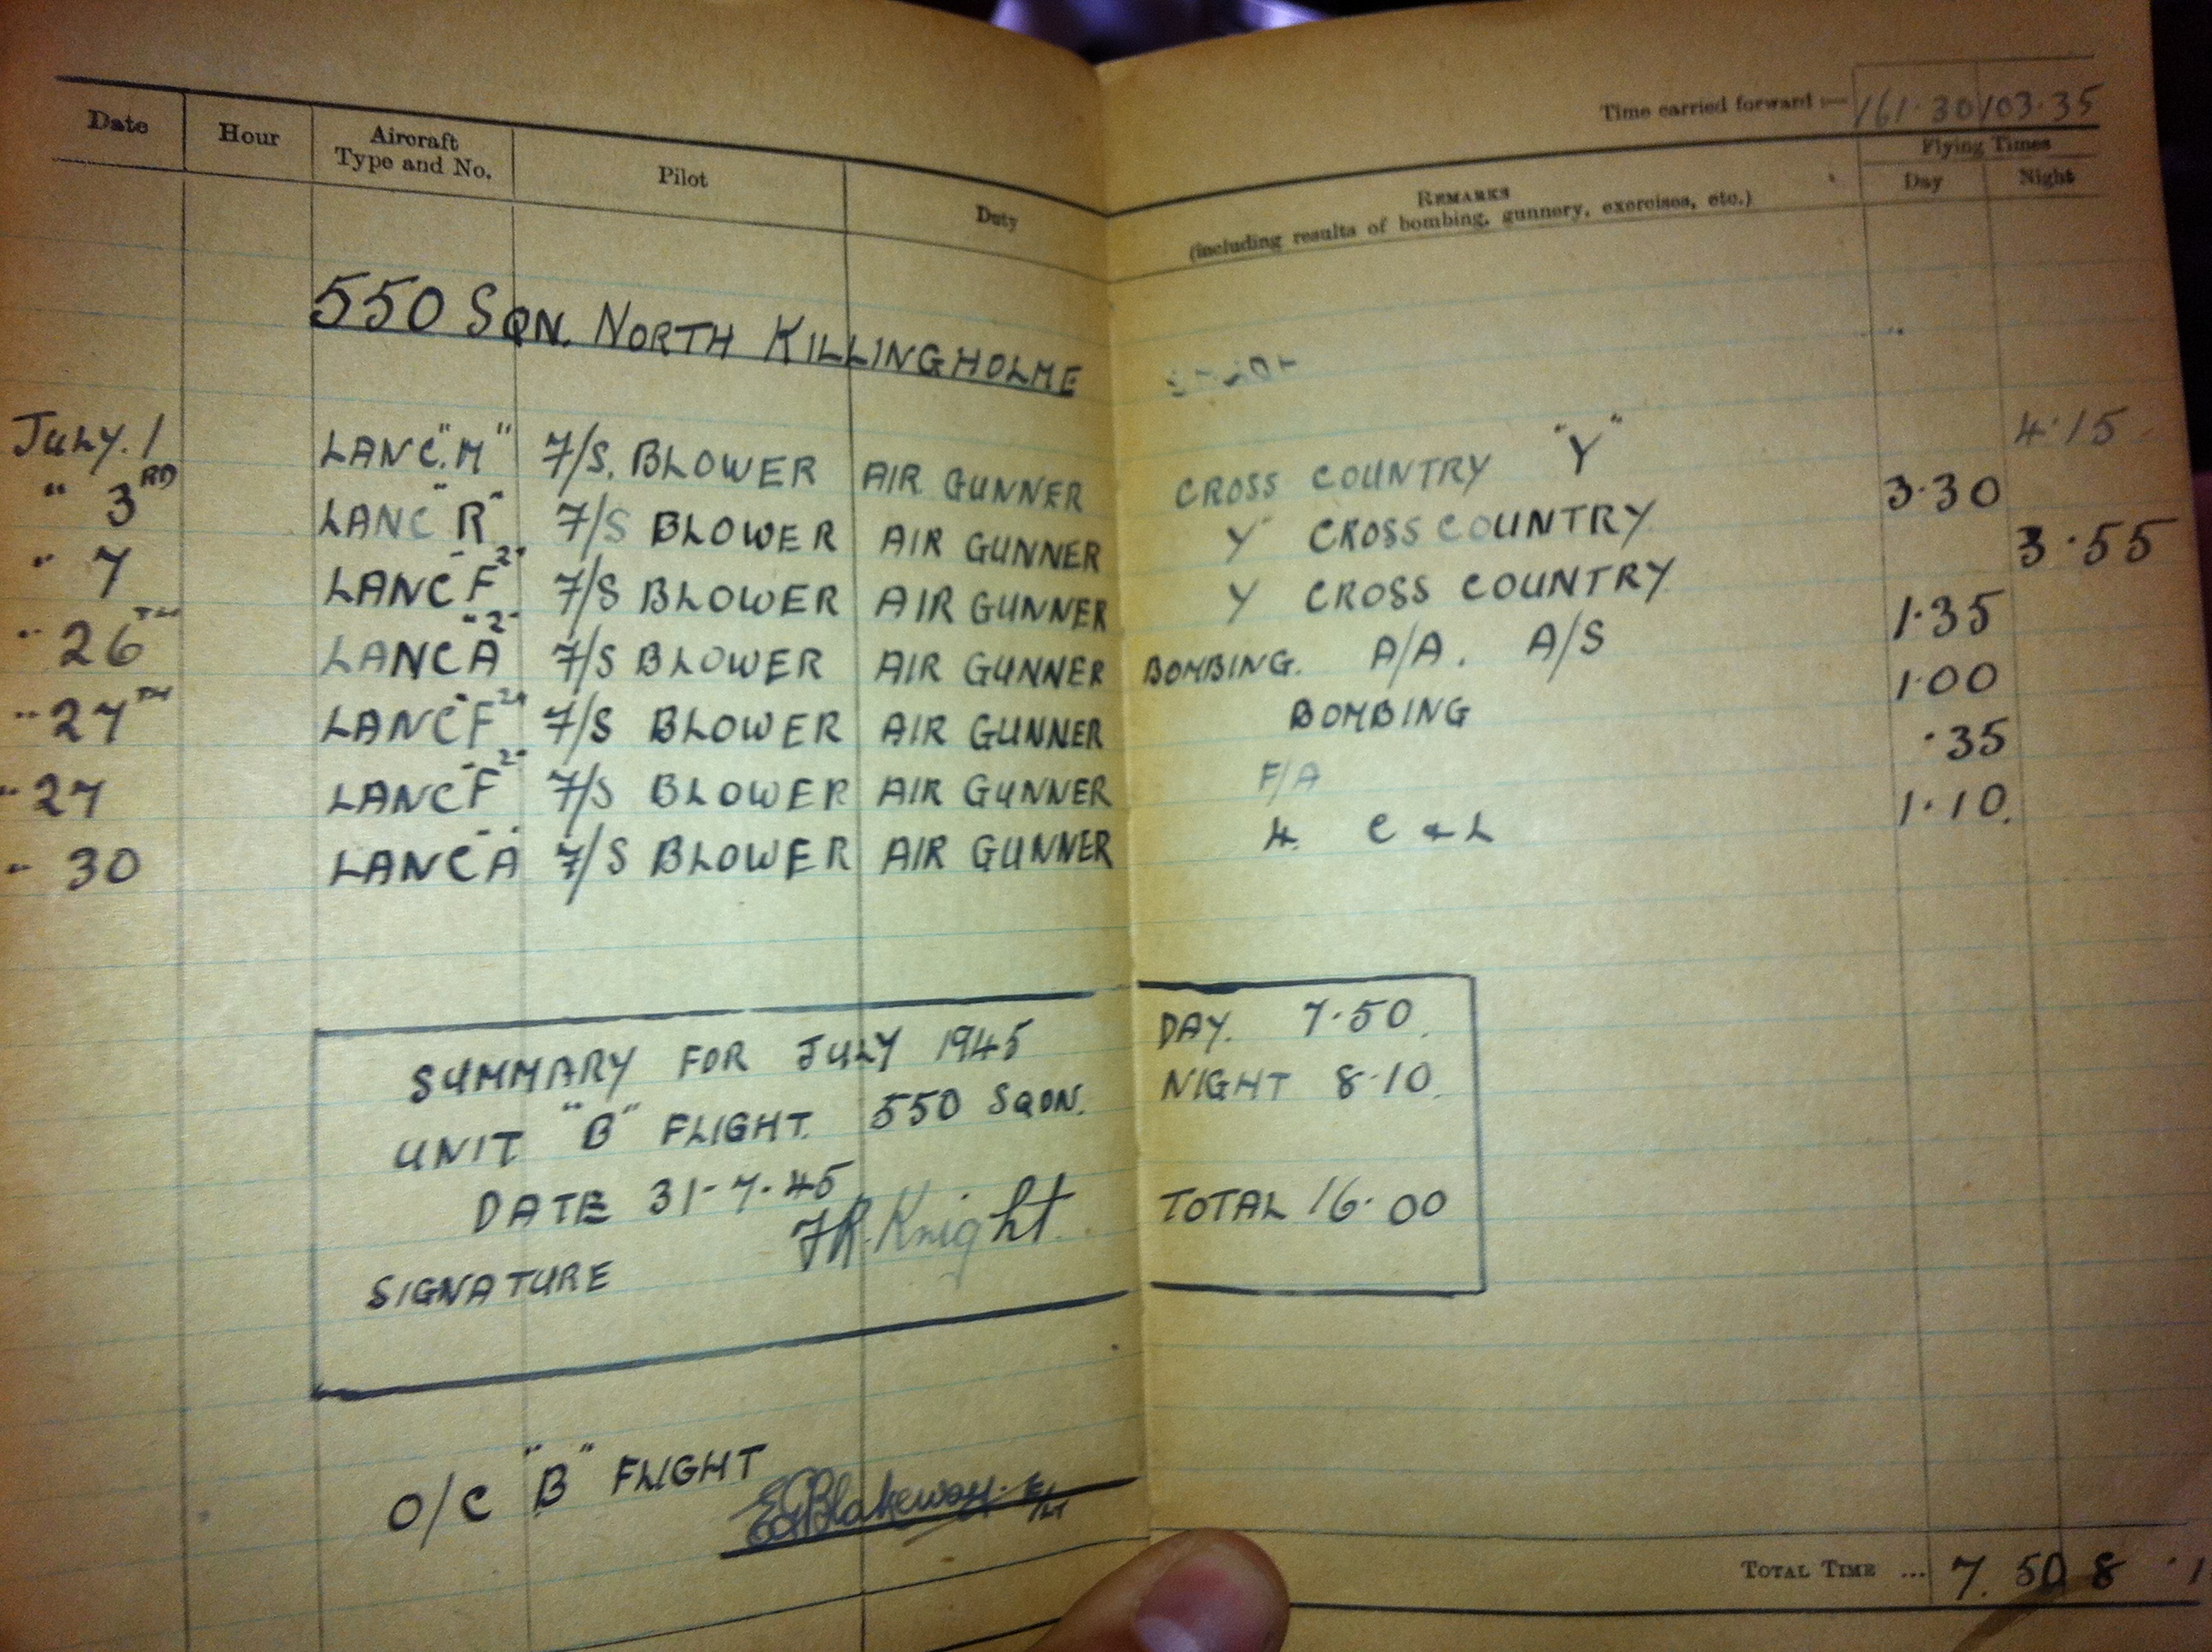 Time carried forward :— 161·30 103·35
Date Hour Aircraft Type and No. Pilot Duty REMARKS (including results of bombing, gunnery, exercises, etc.) Flying Times Day Night
550 SQN. NORTH KILLINGHOLME
JULY. 1 LANC. "M" F/S. BLOWER AIR GUNNER CROSS COUNTRY "Y" 4·15
" 3RD LANC "R" F/S BLOWER AIR GUNNER Y CROSS COUNTRY 3·30
" 7 LANC "F2" F/S BLOWER AIR GUNNER Y CROSS COUNTRY 3·55
" 26TH LANC "A2" F/S BLOWER AIR GUNNER BOMBING. A/A. A/S 1·35
" 27TH LANC "F2" F/S BLOWER AIR GUNNER BOMBING 1·00
" 27 LANC "F2" F/S BLOWER AIR GUNNER F/A ·35
" 30 LANC "A" F/S BLOWER AIR GUNNER 4. C & L 1·10.
SUMMARY FOR JULY 1945 DAY. 7·50.
UNIT "B" FLIGHT. 550 SQDN. NIGHT 8·10.
DATE 31-7-45 TOTAL 16·00
SIGNATURE FR. Knight.
O/C "B" FLIGHT EG Blakeway. F/LT
TOTAL TIME ... 7. 50 8 ·1